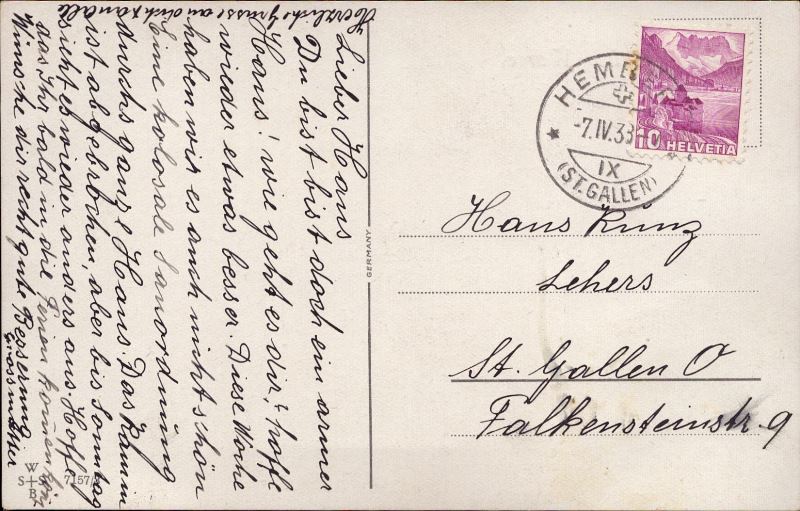 Lieber Hans
Du bist bist doch ein armer
Hans! wie geht es dir? hoffe
wieder etwas besser. Diese Woche
haben wir es auch nicht schön
Eine kolosale Sanordnung
durchs ganze Haus. Das Kamm
ist abgebrochen, aber bis Sonntag
sieht es wieder anders aus. Hoffe
das Ihr bald in die Ferien kommen
Wünsche dir recht gute Besserung
Grossmutter
Herzliche Grüsse an dich & an alle
HEMBERG
-7.IV.38
IX
(ST. GALLEN)
10 HELVETIA
Hans Kunz
Lehers
St. Gallen O
Falkensteinstr. 9
GERMANY
W
S+S
B
7157/